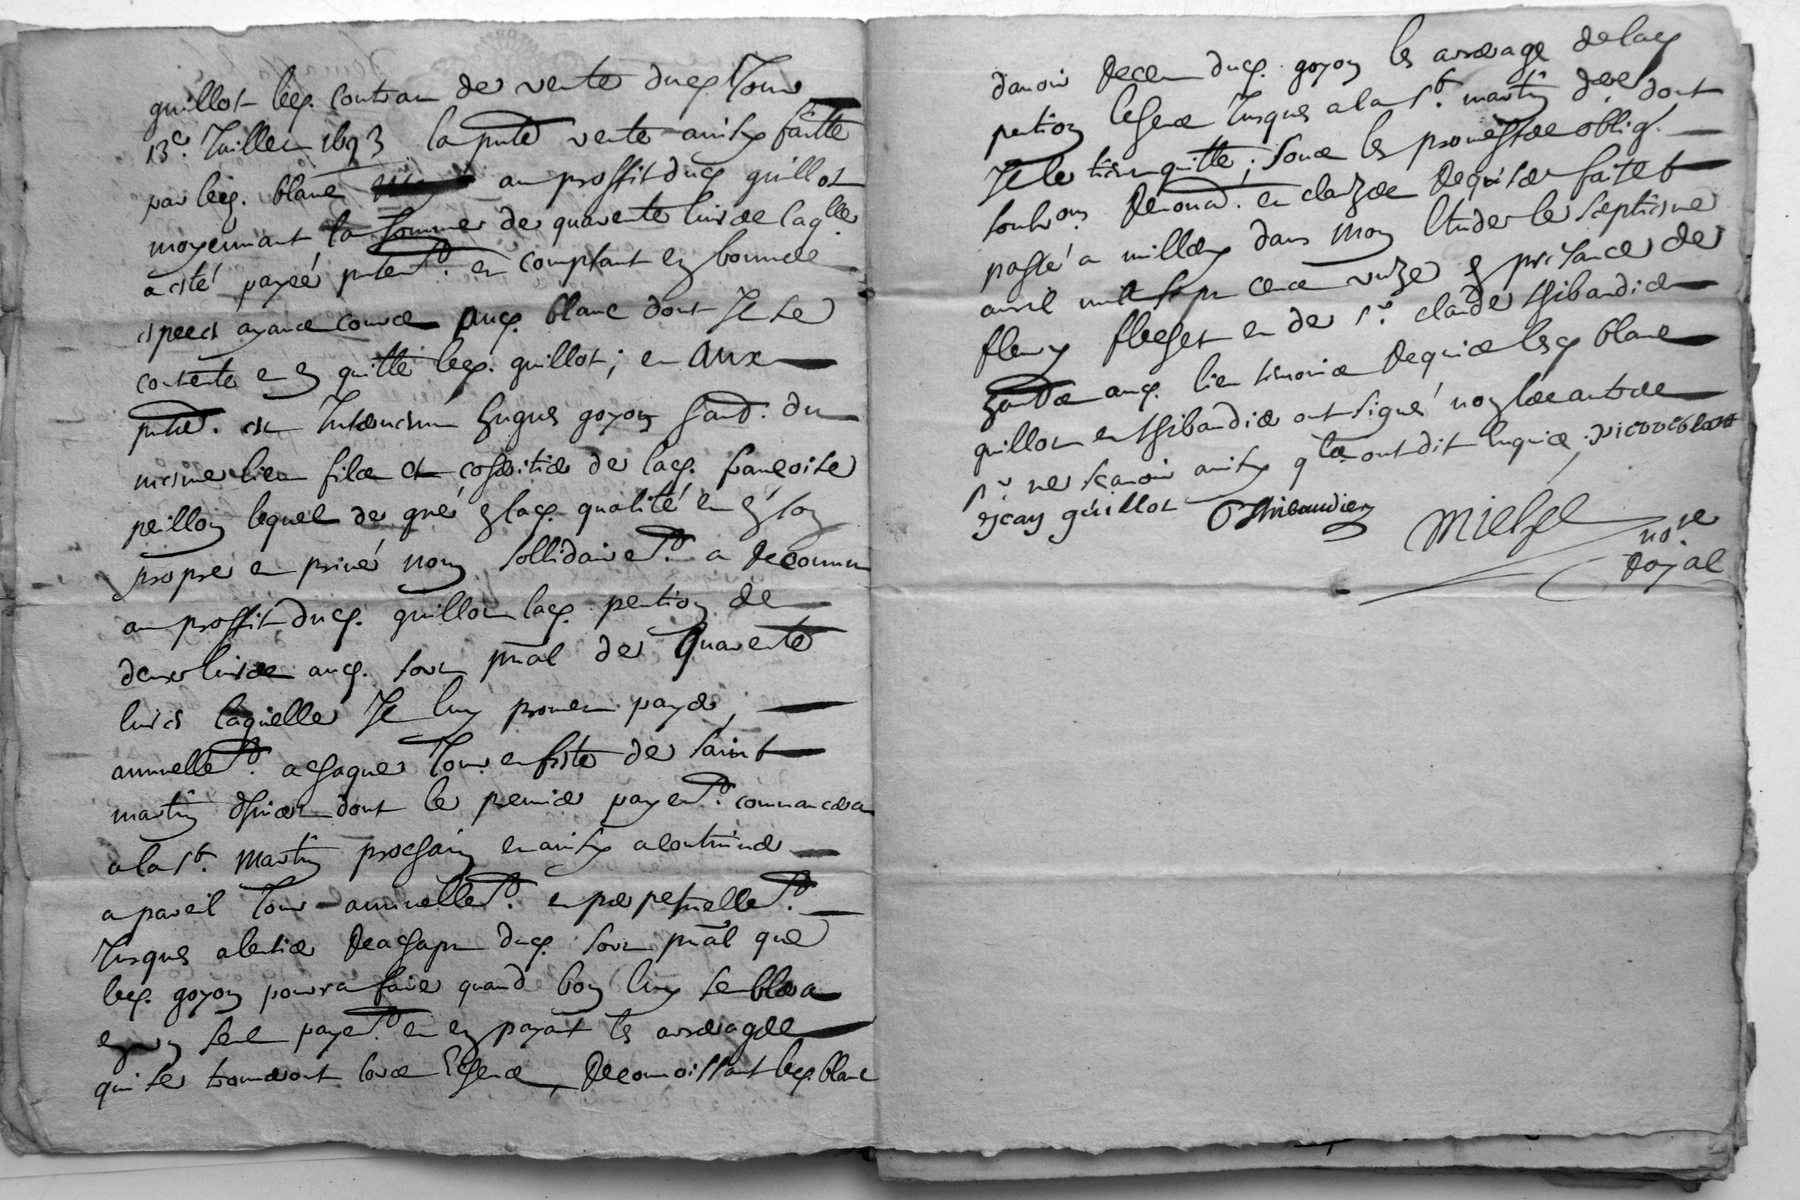 guillot led. contrat de vente dud. Jour
13e. Juillet 1693 la pnte vente ainsy faitte
par led. blanc au proffit dud guillot
moyennant la somme de quarente livres laqlle
a esté payée pntemt. et comptant en bonnes
especes ayant cours aud. blanc dont Je se
contente et en quitte led. guillot; et aux
pntes. est Intervenu hugues goyon hand. du
mesme lieu filz et cohéritier de lad. françoise
peillon lequel de gré en lad. qualité et en son
propre et privé nom sollidairemt. a reconnu
au proffit dud. guillot lad. pention de
deux livres aud. sort pnal de quarente
livres laquelle Je luy promet payer
annuellemt. a chaque Jour et feste de saint
martin dhiver dont le premier payemt. commancera
a la st. martin prochain et ainsy a continuer
a pareil Jour annuellemt. et perpetuellemt.
Jusques alentier reachapt dud. sort pnal que
led. goyon pourra faire quand bon luy semblera
en un seul payemt. et en payant les arrerages
qui se trouveront lors Escheus, reconnoissant led. blanc
davoir receu dud. goyon les arrerages de lad
pention Escheus Jusques a la st. martin dere dont
Je le tien quitte; sous les promesses oblig.
soubons. renond. et clauzes requises fait et
passé a millery dans mon Etude le septiesme
avril mil sept cent unze en presence de
fleury flechet et de sr. claude thibaudier
aud. lieu temoins requis lesd blanc
guillot et thibaudier ont signés non les autres
pr ne scavoir ainsy qlz ont dit enquis. pierre blanc
ejean guillot CThibaudier
Michel
nore
Royal